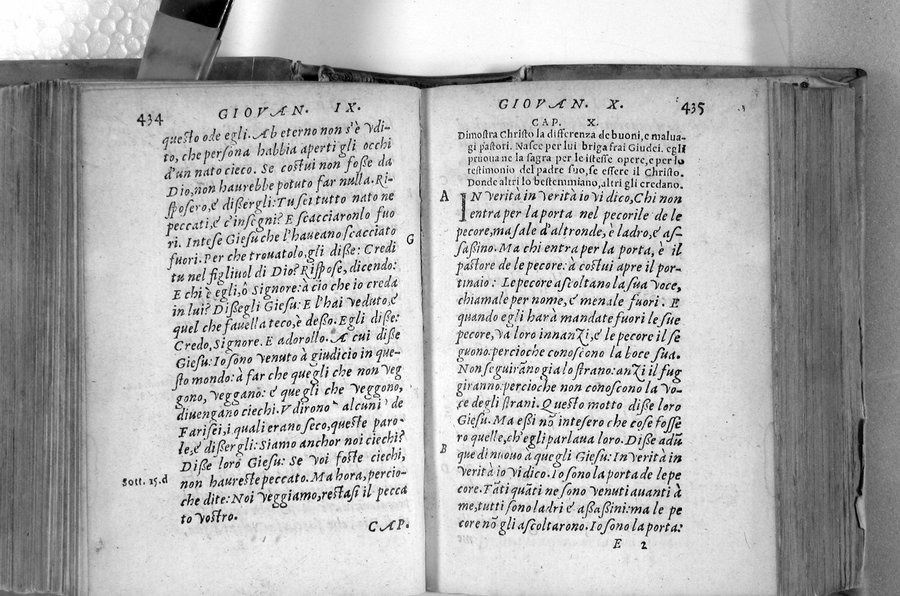 434 GIOVAN. IX.
questo ode egli. Ab eterno non s'è vdi-
to, che persona habbia aperti gli occhi
d'un nato cieco. Se costui non fosse da
Dio, non haurebbe potuto far nulla. Ri-
sposero, é dißergli: Tu sei tutto nato ne
peccati, é c'insegni? E scacciaronlo fuo
ri. Intese Giesu che l'haueano scacciato
fuori. Per che trouatolo, gli diße: Credi
tu nel figliuol di Dio? Rispose, dicendo:
E chi è egli, ô Signore: à cio che io creda
in lui? Dißegli Giesu: E l'hai veduto, é
quel che fauella teco, è deßo. Egli diße:
Credo, Signore. E adorollo. A cui diße
Giesu: Io sono venuto à giudicio in que-
sto mondo: à far che quegli che non veg
gono, veggano: é quegli che veggono,
diuengano ciechi. Vdirono alcuni de
Farisei, i quali erano seco, queste paro-
le, é dißergli: Siamo anchor noi ciechi?
Diße loro Giesu: Se voi foste ciechi,
non haureste peccato. Ma hora, percio-
che dite: Noi veggiamo, restasi il pecca
to vostro.
G
Sott. 15.d
CAP.
GIOVAN. X. 435
CAP. X.
Dimostra Christo la differenza de buoni, e malua-
gi pastori. Nasce per lui briga frai Giudei. egli
pruoua ne la sagra per le istesse opere, e per lo
testimonio del padre suo, se essere il Christo.
Donde altri lo bestemmiano, altri gli credano.
A IN verità in verità io vi dico, Chi non
entra per la porta nel pecorile de le
pecore, ma sale d'altronde, è ladro, é as-
saßino. Ma chi entra per la porta, è il
pastore de le pecore: à costui apre il por-
tinaio: Le pecore ascoltano la sua voce,
chiamale per nome, é menale fuori. E
quando egli harà mandate fuori le sue
pecore, va loro innanzi, é le pecore il se
guono: percioche conoscono la boce sua.
Non seguirãno gia lo strano: anzi il fug
giranno: percioche non conoscono la vo-
ce degli strani. Questo motto diße loro
Giesu. Ma eßi nõ intesero che cose fosse
ro quelle, ch'egli parlaua loro. Diße adũ
B que di nuouo à quegli Giesu: In verità in
verità io vi dico. Io sono la porta de le pe
core. Tãti quãti ne sono venuti auanti à
me, tutti sono ladri é aßaßini: ma le pe
core nõ gli ascoltarono. Io sono la porta:
E 2